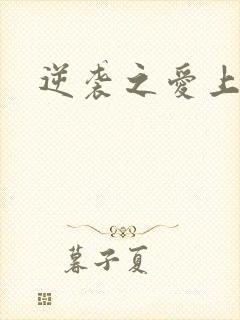 逆袭之愛上
暮子夏